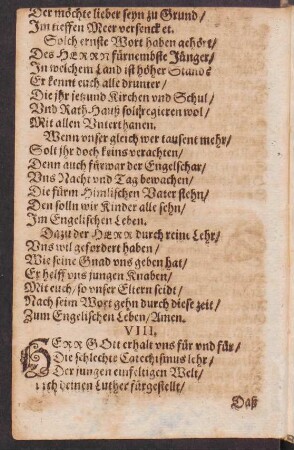 Der möchte lieber seyn zu Grund/
Im tieffen Meer versencket.
Solch ernste Wort haben gehört/
Des HERRN fürnembste Jünger/
In welchem Land ist höher Stands
Er kennt euch alle drunter/
Die jhr jetzund Kirchen vnd Schul/
Vnd Rath-Hauß solt regieren wol/
Mit allen Vnterthanen.
Wenn vnser gleich wer tausent mehr/
Solt jhr doch keins verachten/
Denn auch fürwar der Engelschar/
Vns Nacht vnd Tag bewachen/
Die fürm Himlischen Vater stehn/
Den solln wir Kinder alle sehn/
Im Engelischen Leben.
Dazu der HERR durch reine Lehr/
Vns wil gefordert haben/
Wie seine Gnad vns geben hat/
Er helff vns jungen Knaben/
Mit euch/ so vnser Eltern seidt/
Nach seim Wort gehn durch diese zeit/
Zum Engelischen Leben/ Amen.
VIII.
HERR GOtt erhalt vns für vnd für/
Die schlechte Catechismus lehr/
Der jungen einfeltigen Welt/
deinen Luther fürgestellt/
Daß